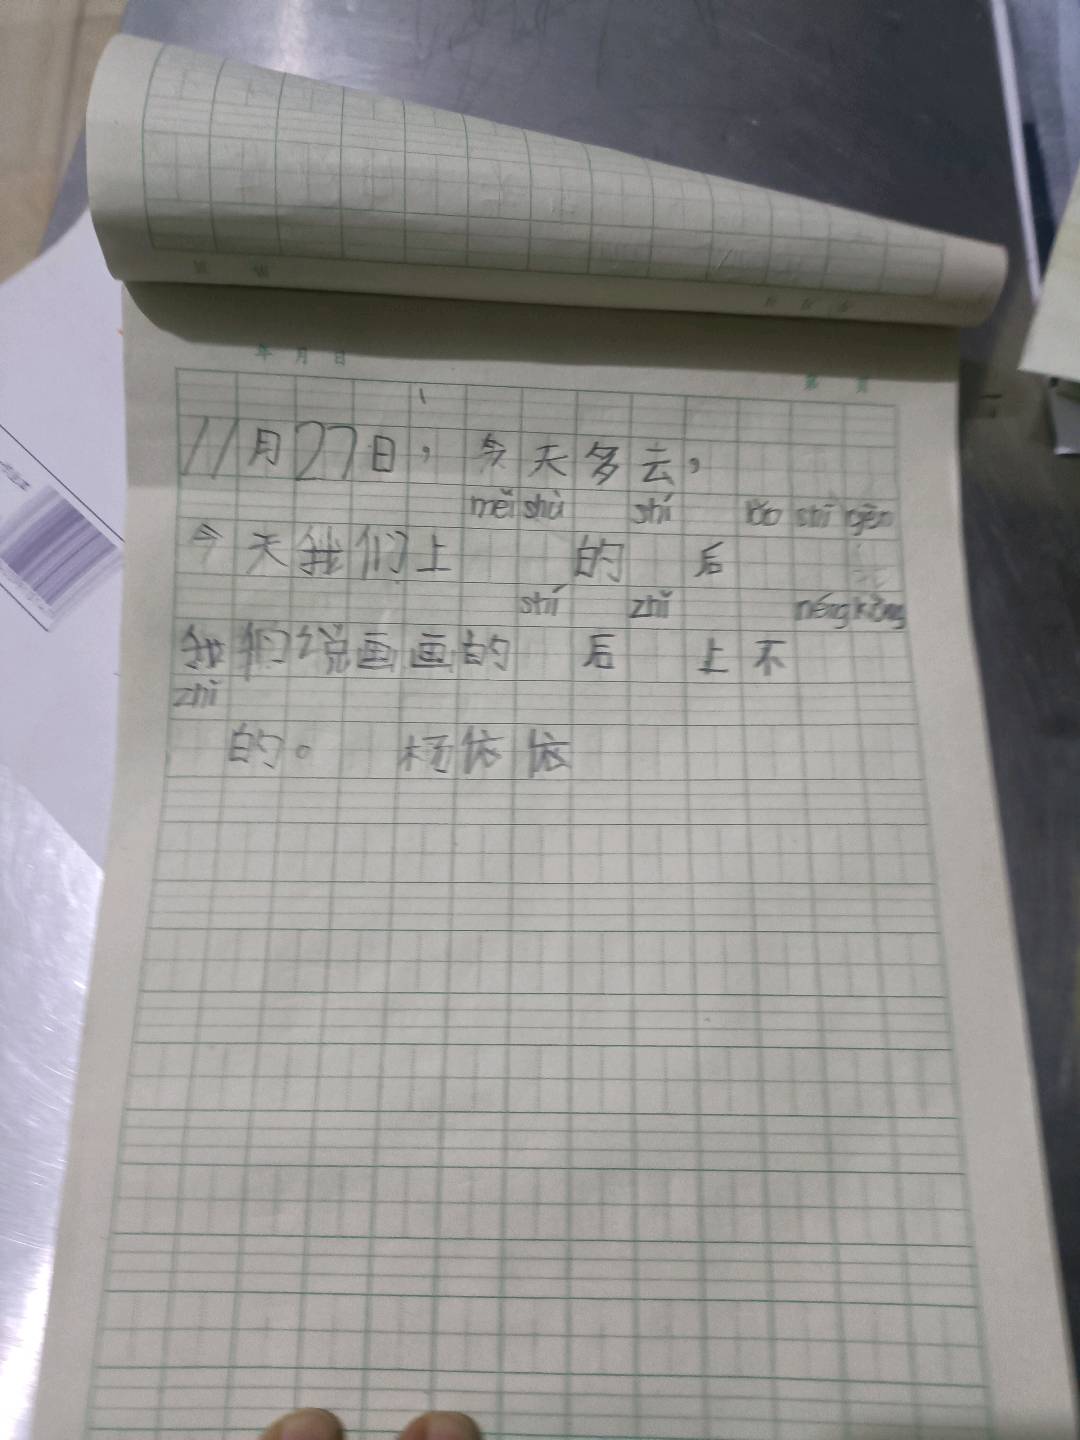 年 月 日
第 页
11月27日，今天多云，
měi shù shí lǎo shī gēn
今天我们上 的 后
shí zhǐ néng kǒng
我们说画画的 后 上不
zhǐ
的。 杨依依